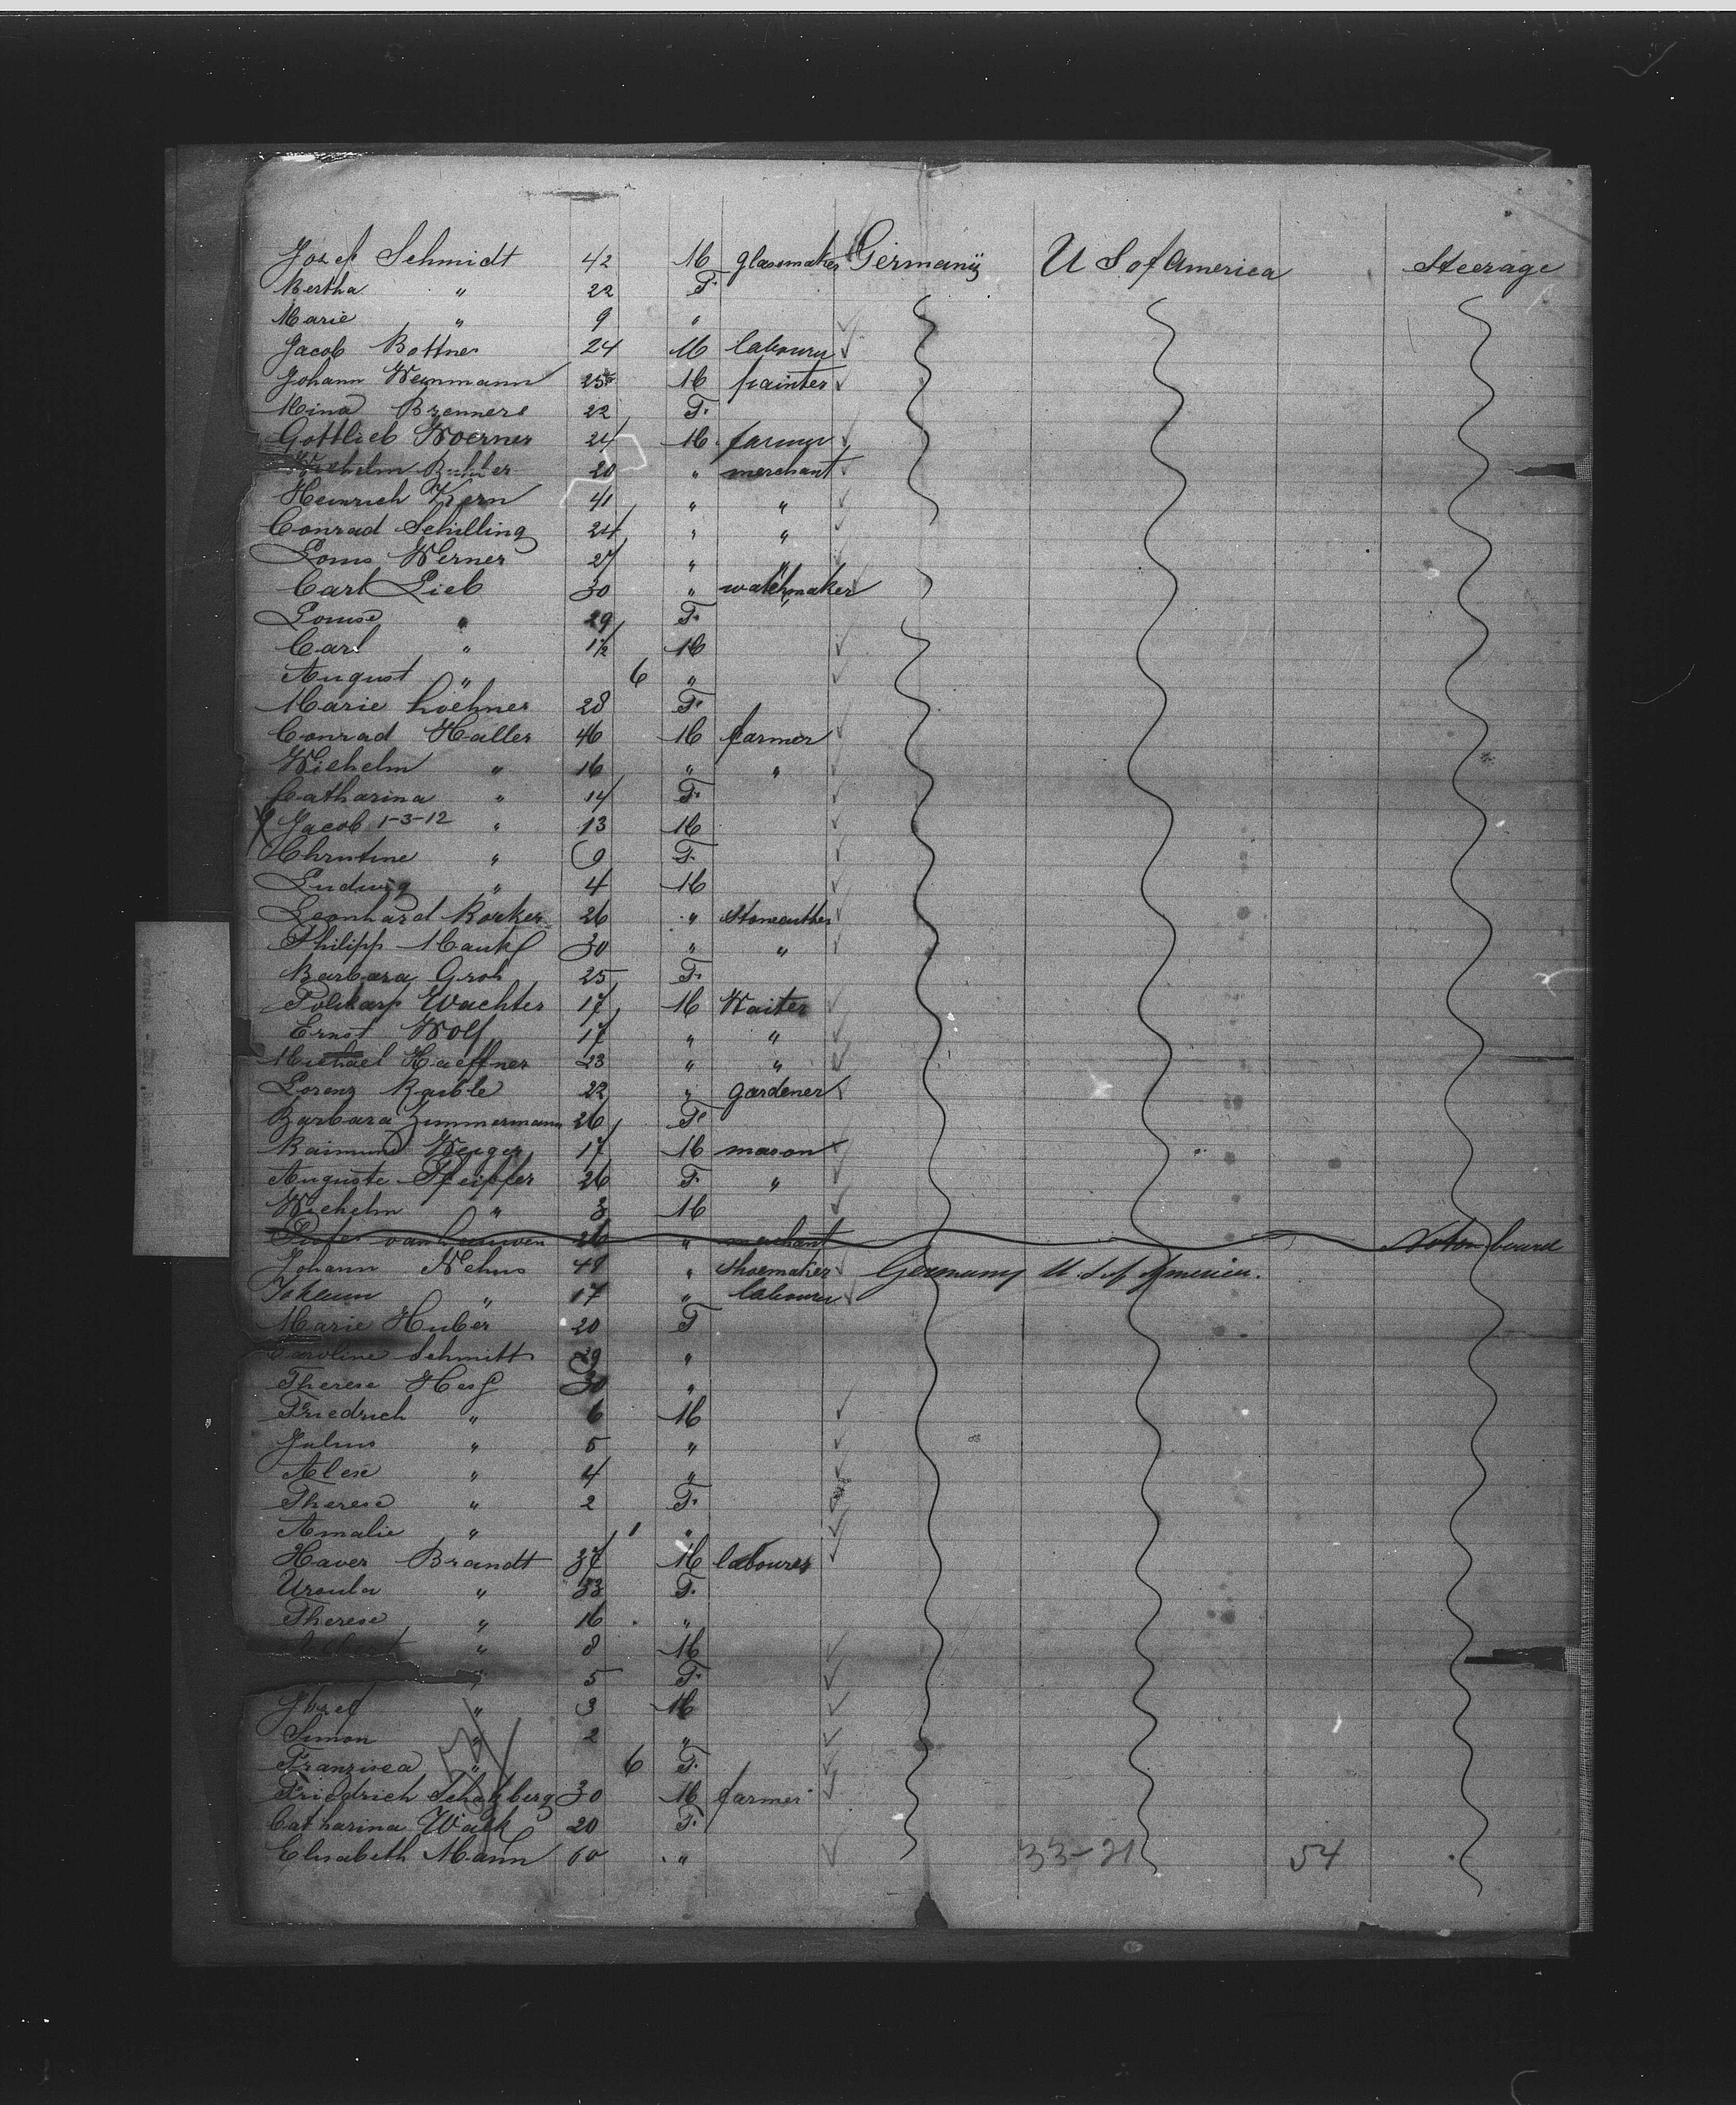 Josef Schmidt 42 M glassmaker Germany U S of America Steerage
Bertha " 22 F.
Marie " 9 "
Jacob Bottner 24 M labourer
Johann Weinmann 25 M painter
Mina Brenner 22 F.
Gottlieb Woerner 24 M. farmer
Wilhelm Buhler 20 " merchant
Heinrich Kern 41 " "
Conrad Schilling 24 " "
Louis Werner 27 " "
Carl Lieb 30 " watchmaker
Louise " 29 F.
Carl " 1½ M
August " 6 "
Marie Loehner 28 F.
Conrad Haller 46 M farmer
Wilhelm " 16 " "
Catharina " 14 F.
X Jacob 1-3-12 " 13 M
Christine " 9 F.
Ludwig " 4 M
Leonhard 26 " Stonecutter
Philipp Mauk 30 " "
Barbara Groh 25 F.
Polikarp Wachter 17 M Waiter
Ernst Wolf 17 " "
Michael Haeffner 23 " "
Lorenz Raible 22 " gardener
Barbara Zimmermann 26 F.
Raimund 17 M mason
Auguste Pfeiffer 26 F. "
Wilhelm " 3 M
van Leeuwen 26 " merchant Not on board
Johann Nehus 48 " Shoemaker Germany U. S. of America.
Johann " 17 " labourer
Marie Huber 20 F
Caroline Schmitt 29 "
Therese Hess 30 "
Friedrich " 6 M
Julius " 5 "
" 4 "
Therese " 2 F.
Amalie " 1 "
Xaver Brandt 37 M labourer
Ursula " 33 F.
Therese " 16 "
" 8 M
" 5 F.
Josef " 3 M
Simon " 2 "
Franzisca " 6 F.
Friedrich 30 M farmer
Catharina Walk 20 F.
Elisabeth Mann 60 "
33-21 54